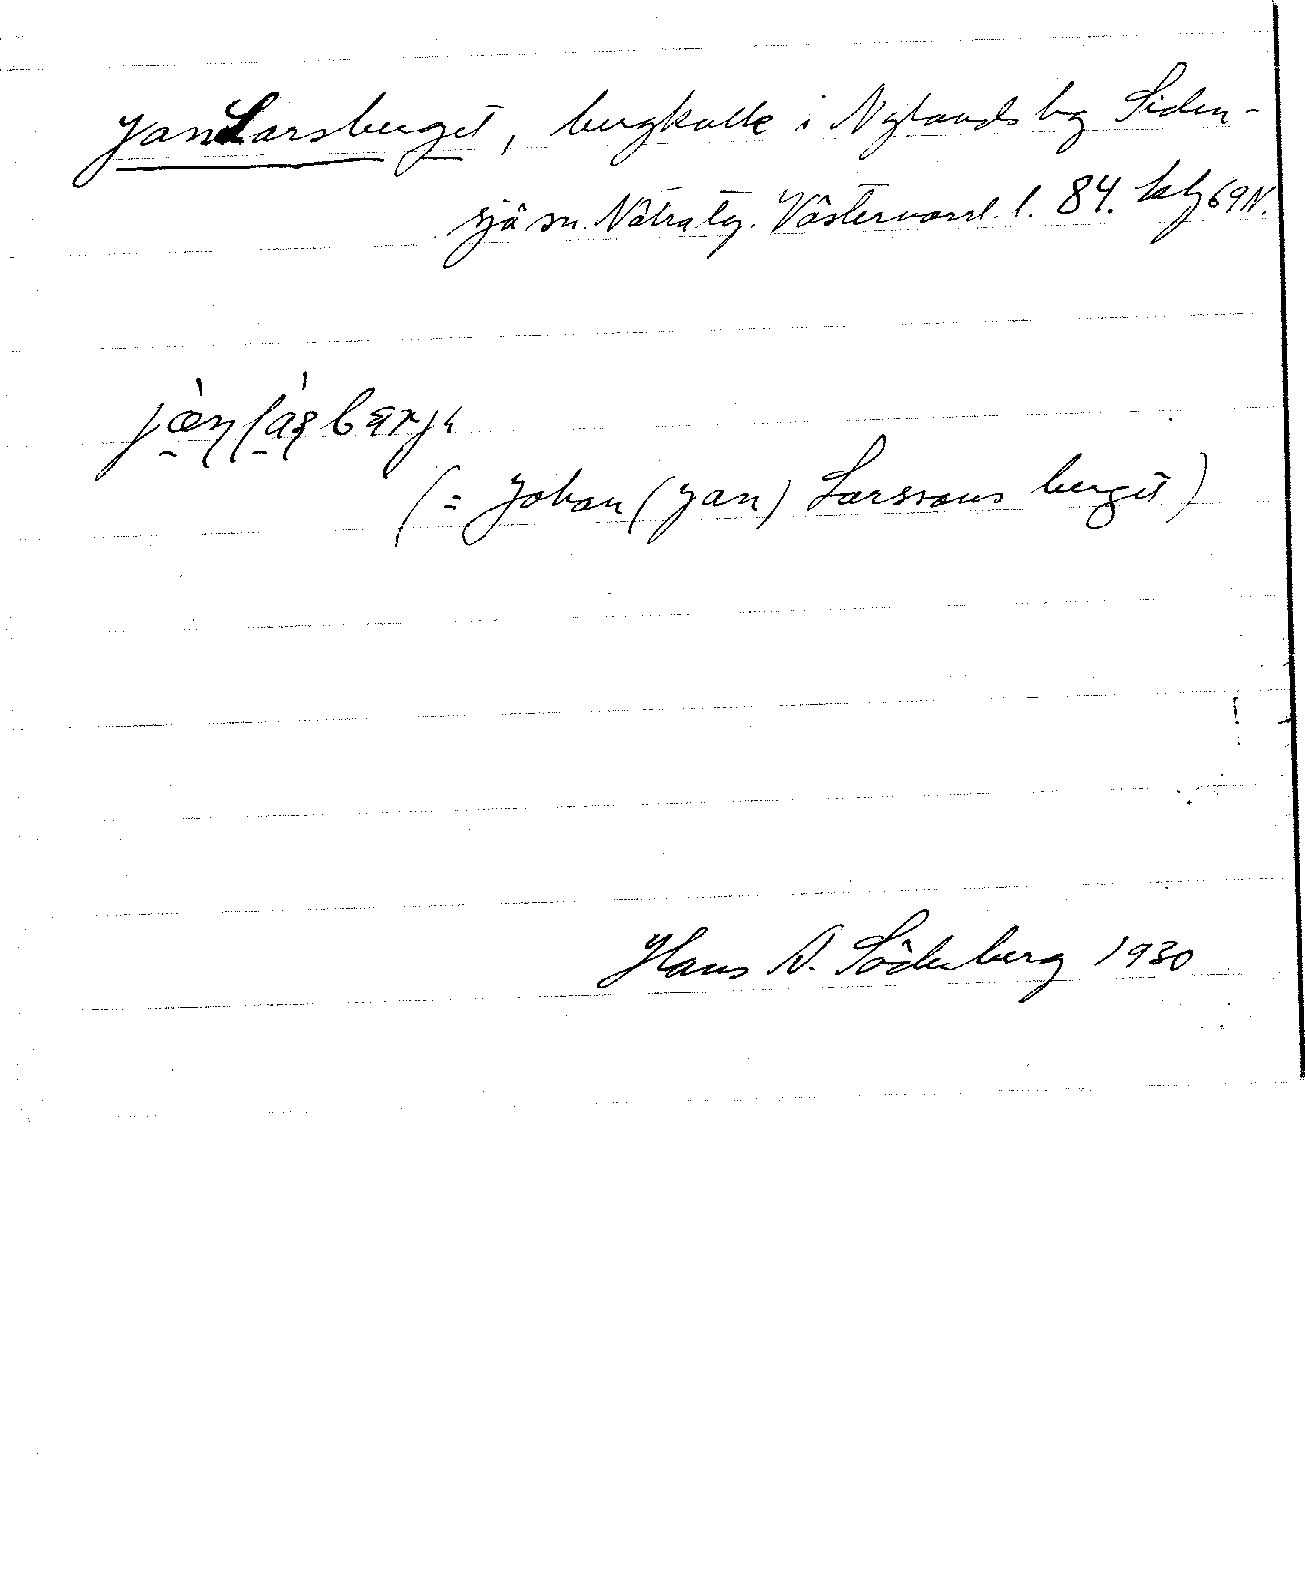 JanLarsberget, bergkulle i Nylands by Siden-
sjö sn. Nätra tg. Västernorrl. l. 84. kbl 69 N.
(= Johan (Jan) Larssons berget)
Hans A. Söderberg 1930